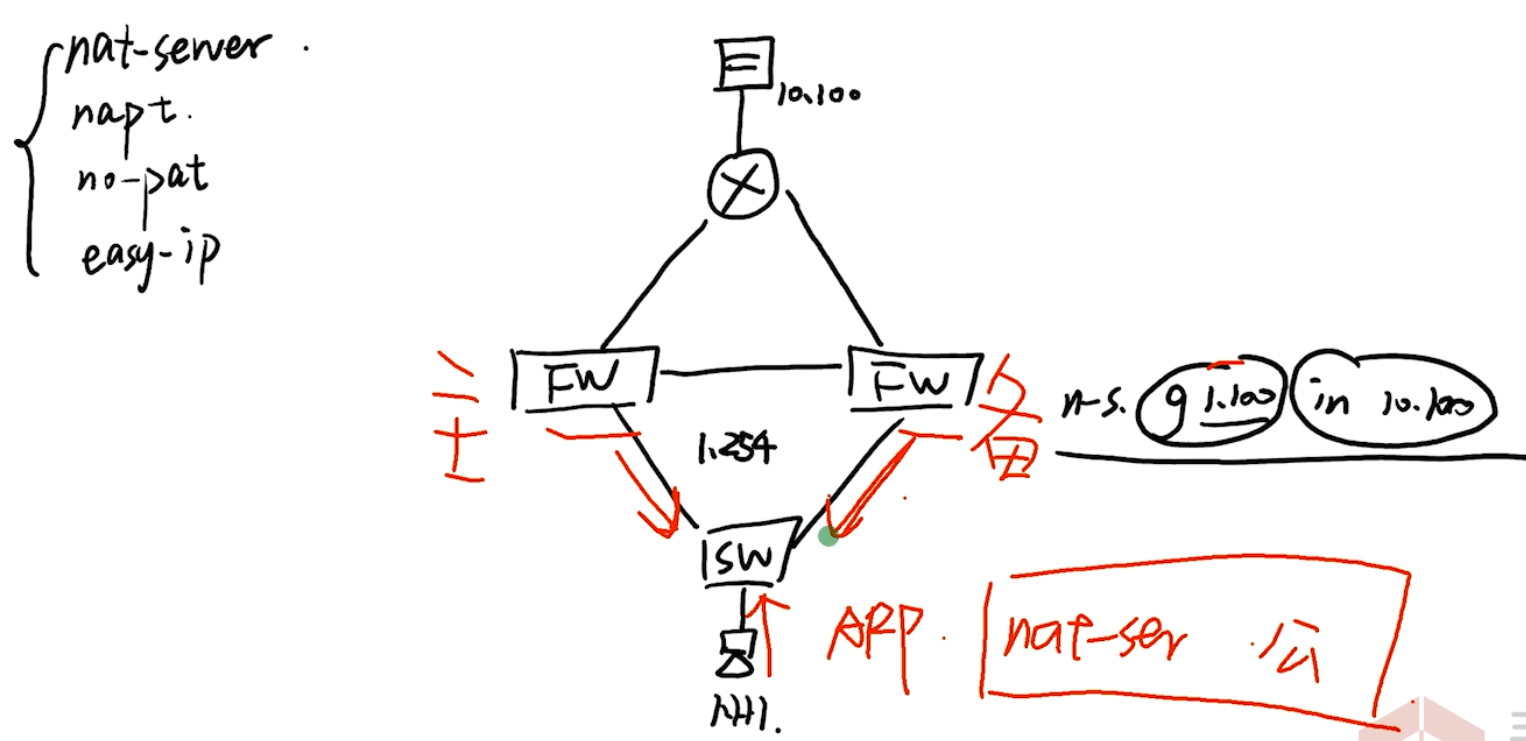 nat-server .
napt.
no-pat
easy-ip
10.100
FW
FW
主
备
n-s. g 1.100 in 10.100
1.254
SW
ARP.
nat-ser 公